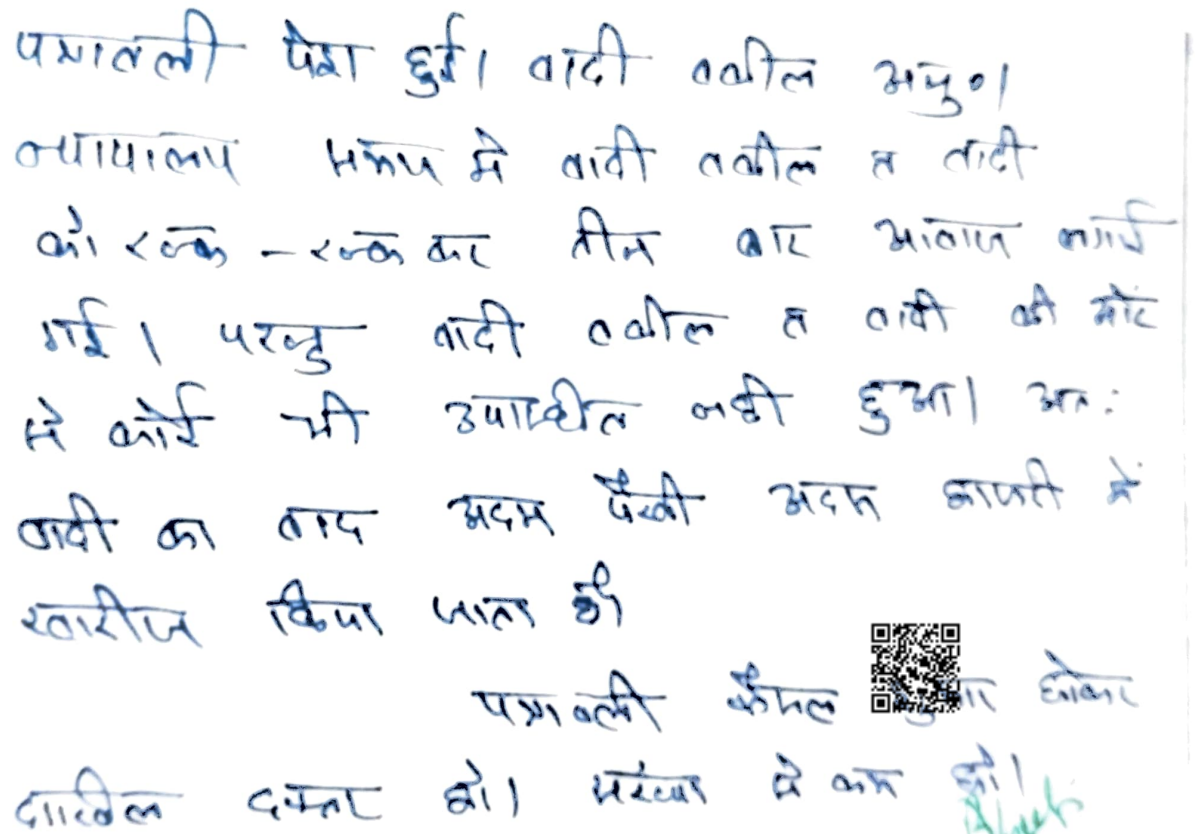 पत्रावली पेश हुई। वादी वकील अनु०।
न्यायालय समय मे वादी वकील व वादी
को रूक-रूक कर तीन बार आवाज लगाई
गई। परन्तु वादी वकील व वादी की ओर
से कोई भी उपस्थित नही हुआ। अतः
वादी का वाद अदम पैरवी अदम हाजरी में
खारीज किया जाता है।
पत्रावली फैसल शुमार होकर
दाखिल दफ्तर हो। संख्या से कम हो।